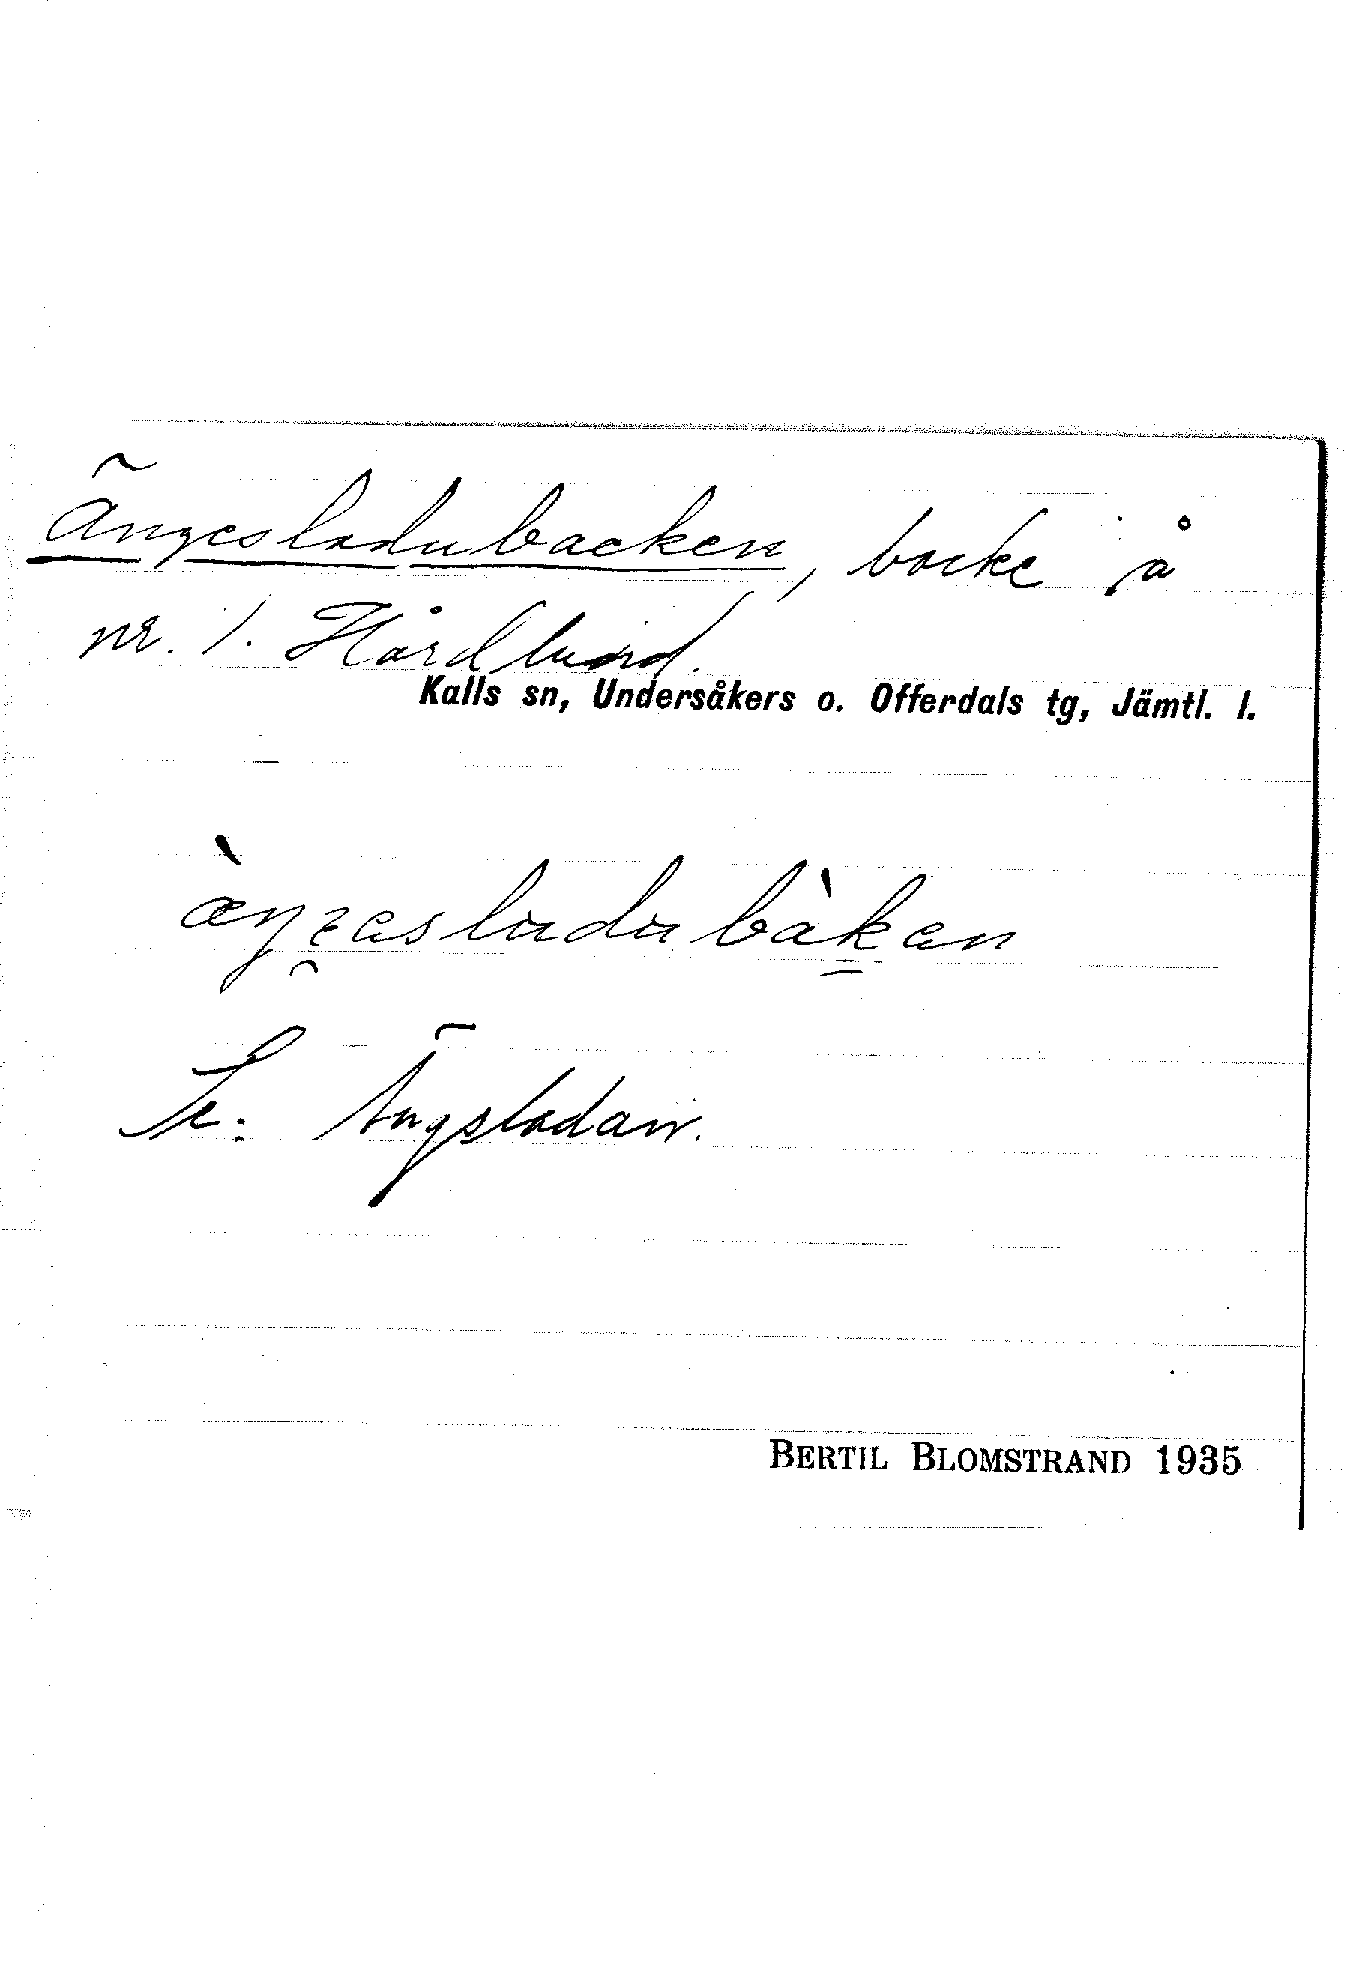 Ängesladubacken, backe på
nr. 1. Hårdlund.
Kalls sn, Undersåkers o. Offerdals tg, Jämtl. l.
Se: Ängsladan.
BERTIL BLOMSTRAND 1935